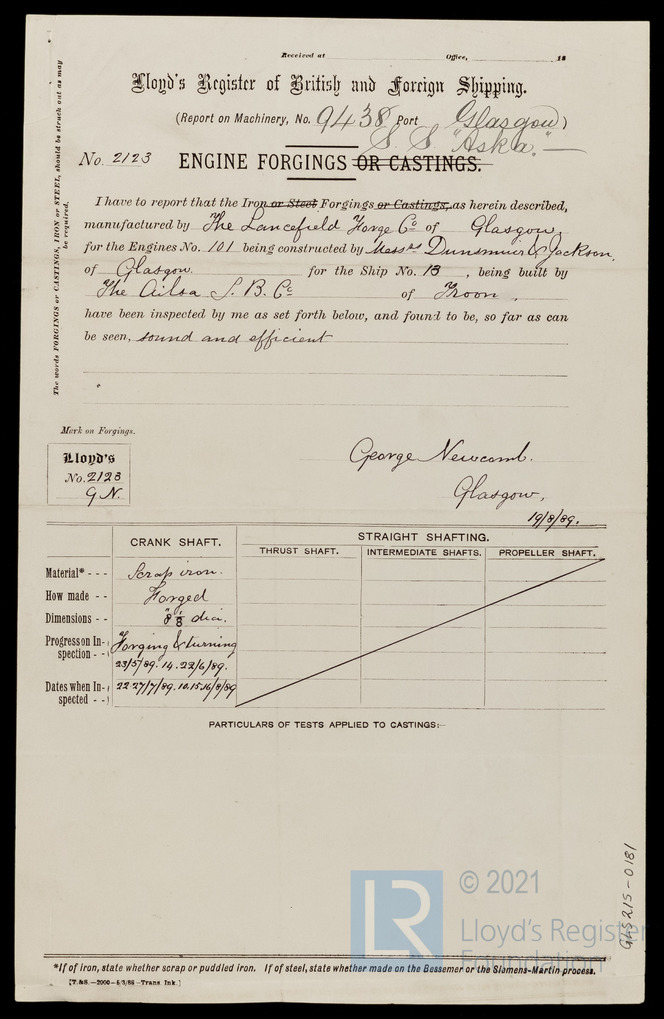 Received at Office, 18
Lloyd's Register of British and Foreign Shipping.
(Report on Machinery, No. 9438 Port Glasgow)
S. S. "Aska."
No. 2123 ENGINE FORGINGS OR CASTINGS.
The words FORGINGS or CASTINGS, IRON or STEEL, should be struck out as may
be required.
I have to report that the Iron or Steel Forgings or Castings, as herein described,
manufactured by The Lancefield Forge Co of Glasgow
for the Engines No. 101 being constructed by Messrs Dunsmuir & Jackson,
of Glasgow for the Ship No. 13, being built by
The Ailsa S. B. Co of Troon,
have been inspected by me as set forth below, and found to be, so far as can
be seen, sound and efficient
Mark on Forgings.
Lloyd's
No. 2123
G.N.
George Newcomb.
Glasgow,
19/8/89.
CRANK SHAFT. STRAIGHT SHAFTING.
THRUST SHAFT. INTERMEDIATE SHAFTS. PROPELLER SHAFT.
Material* - - - Scrap iron.
How made - - Forged
Dimensions - - 8 1/8" dia.
Progress on In-
spection - - Forging & turning
23/5/89. 14. 22/6/89.
Dates when In-
spected - - 22.27/7/89. 10.15.16/8/89
PARTICULARS OF TESTS APPLIED TO CASTINGS:—
GLS215-0181
© 2021
LR Lloyd's Register
Foundation
*If of iron, state whether scrap or puddled iron. If of steel, state whether made on the Bessemer or the Siemens-Martin process.
[T.&S.—2000—5/3/86—Trans. Ink.]